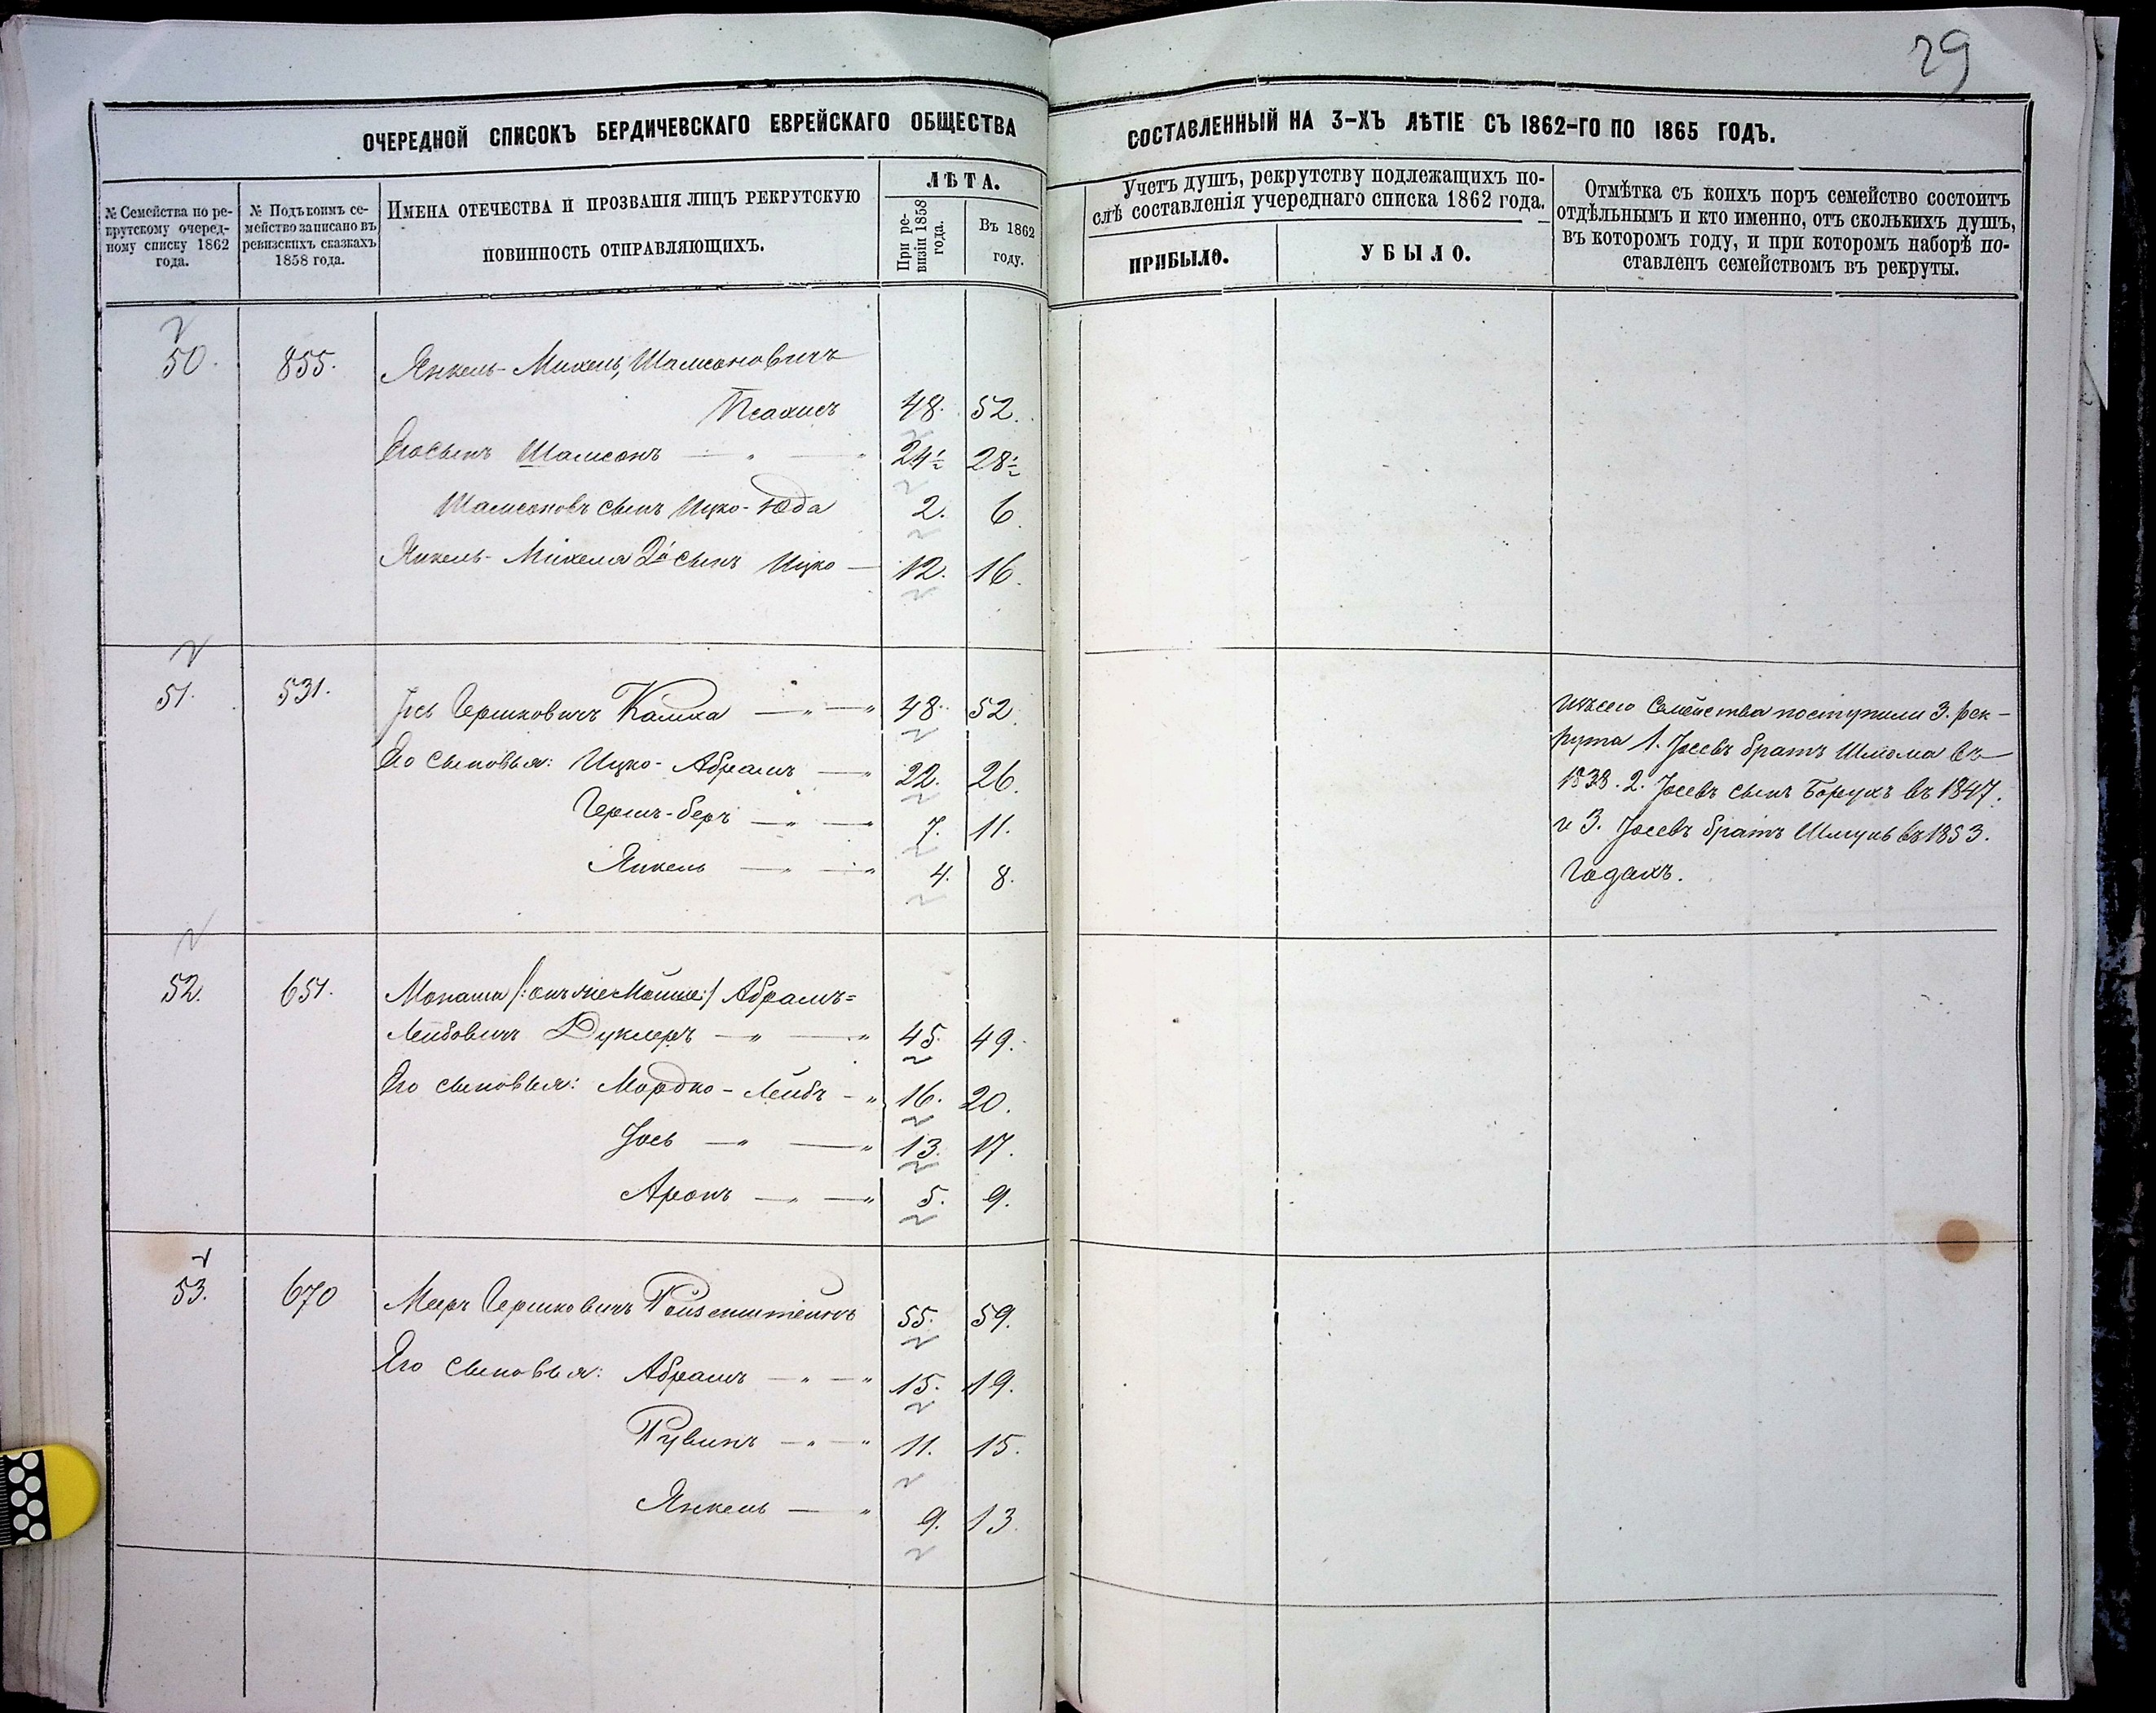 29
ОЧЕРЕДНОЙ СПИСОКЪ БЕРДИЧЕВСКАГО ЕВРЕЙСКАГО ОБЩЕСТВА
СОСТАВЛЕННЫЙ НА 3-ХЪ ЛѢТІЕ СЪ 1862-ГО ПО 1865 ГОДЪ.
№ Семейства по ре-
крутскому очеред-
ному списку 1862
года.
№ Подъ коимъ се-
мейство записано въ
ревизскихъ сказкахъ
1858 года.
ИМЕНА ОТЕЧЕСТВА И ПРОЗВАНІЯ ЛИЦЪ РЕКРУТСКУЮ
ПОВИННОСТЬ ОТПРАВЛЯЮЩИХЪ.
ЛѢТА.
При ре-
визіи 1858
года.
Въ 1862
году.
Учетъ душъ, рекрутству подлежащихъ по-
слѣ составленія учереднаго списка 1862 года.
ПРИБЫЛО.
УБЫЛО.
Отмѣтка съ коихъ поръ семейство состоитъ
отдѣльнымъ и кто именно, отъ сколькихъ душъ,
въ которомъ году, и при которомъ наборѣ по-
ставленъ семействомъ въ рекруты.
50. 855. Янкель-Михель Шамсоновичъ
Псахисъ 48. 52.
Его сынъ Шамсонъ — „ — „ 24½ 28½
Шамсоновъ сынъ Ицко-Юда 2. 6.
Янкель-Михеля 2й сынъ Ицко — 12. 16.
51. 531. Іось Гершковичъ Камха — „ — „ 48. 52.
Его сыновья: Ицко-Абрамъ — „ 22. 26.
Гершъ-беръ — „ — „ 7. 11.
Янкель — „ — „ 4. 8.
Изъ сего Семейства поступили 3. рек-
рута 1. Іосевъ братъ Шліома въ
1838. 2. Іосевъ сынъ Борухъ въ 1847.
и 3. Іосевъ братъ Шмуль въ 1853.
Годахъ.
52. 651. Монаша /:онъ же Мошко:/ Абрамъ=
Лейбовичъ Дуклеръ — „ — „ 45. 49.
Его сыновья: Мордко-Лейбъ - „ 16. 20.
Іось — „ — „ 13. 17.
Аронъ — „ — „ 5. 9.
53. 670 Мееръ Гершковичъ Ройзенштейнъ 55. 59.
Его сыновья: Абрамъ — „ — „ 15. 19.
Рувинъ — „ — „ 11. 15.
Янкель — „ 9. 13.